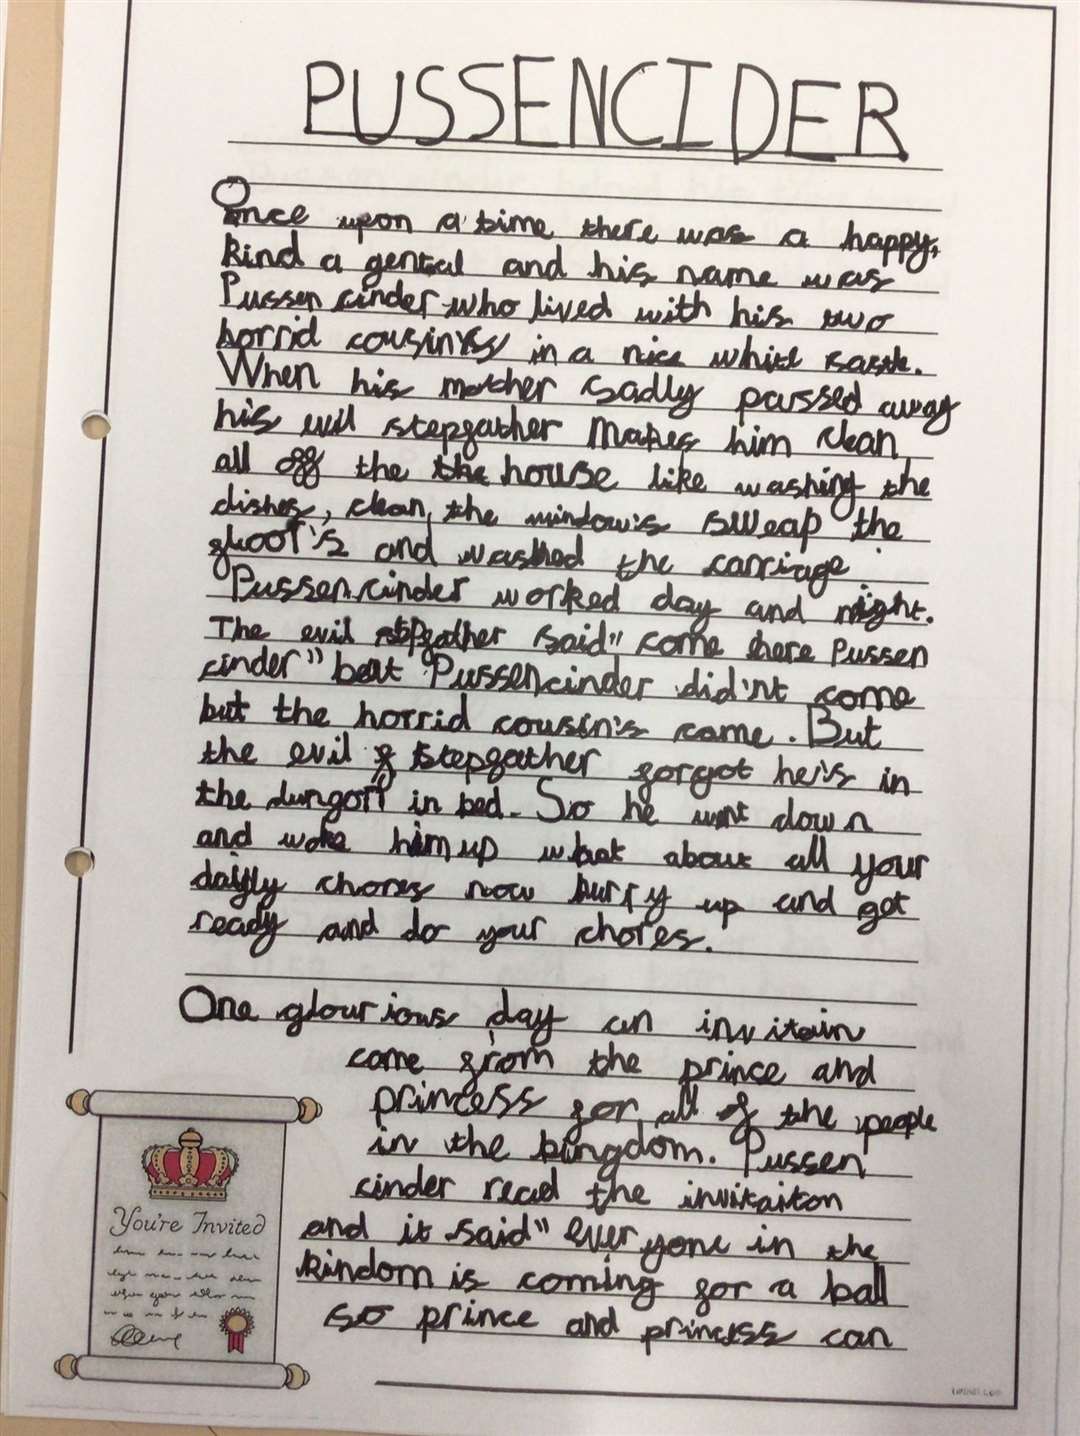 PUSSENCIDER
Once upon a time there was a happy,
kind a gental and his name was
Pussen cinder who lived with his two
horrid cousinys in a nice white castle.
When his mother sadly passed away
his evil stepfather Makes him clean
all off the the house like washing the
dishes, clean, the window's sweap the
gloof's and washed the carriage
Pussen,cinder worked day and night.
The evil stepfather said" come here Pussen
cinder" but Pussencinder did'nt come
but the horrid cousin's came. But
the evil f stepfather forgot he's in
the dungon in bed. So he went down
and woke him up what about all your
dayly chores now hurry up and get
ready and do your chores.
One glourious day an invitain
come from the prince and
princess for all of the people
in the kingdom. Pussen
cinder read the invitaiton
and it said" ever yone in the
kindom is coming for a ball
so prince and princess can
You're Invited